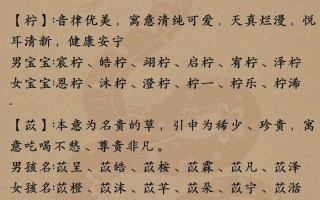 【柠】:音律优美，寓意清纯可爱，天真烂漫，悦
耳清新，健康安宁
男宝宝:宸柠、皓柠、翊柠、启柠、宥柠、泽柠
女宝宝:恩柠、沐柠、澄柠、柠一、柠乐、柠浠
.
【苡】:本意为名贵的草，引申为稀少、珍贵，寓
意吃喝不愁、尊贵非凡。
男孩名:苡呈、苡皓、苡桉、苡霖、苡凡、苡泽
女孩名:苡橙、苡沫、苡芊、苡朵、苡宁、苡湉